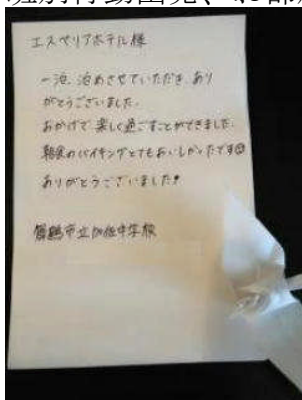 エスペリアホテル様
一泊、泊めさせていただき、あり
がとうございました。
おかげで楽しく過ごすことができました。
朝食のバイキングとてもおいしかったです
ありがとうございました!
舞鶴市立加佐中学校